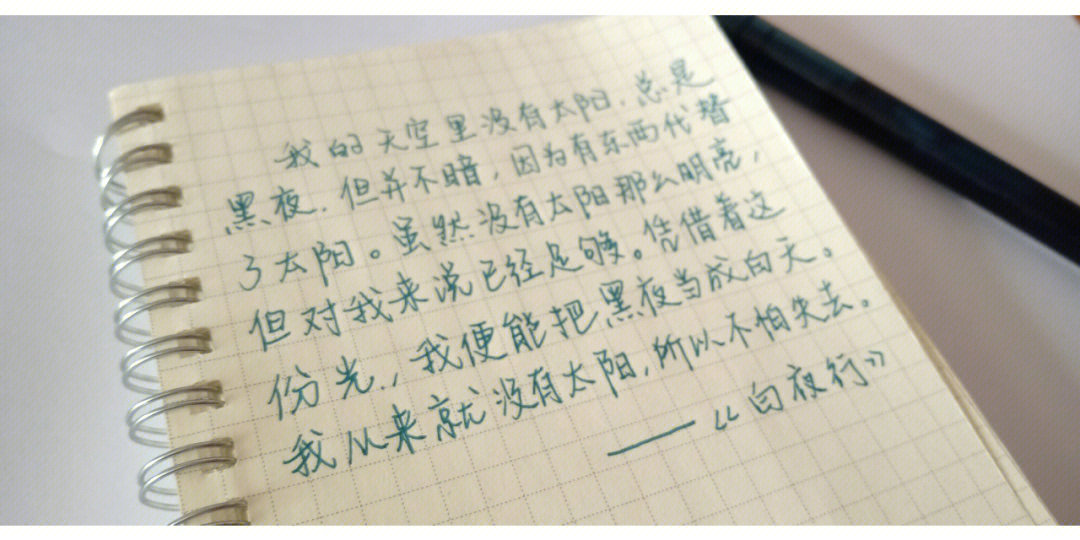 我的天空里没有太阳.总是
黑夜.但并不暗,因为有东西代替
了太阳。虽然没有太阳那么明亮,
但对我来说已经足够。凭借着这
份光.,我便能把黑夜当成白天。
我从来就没有太阳,所以不怕失去。
——《白夜行》